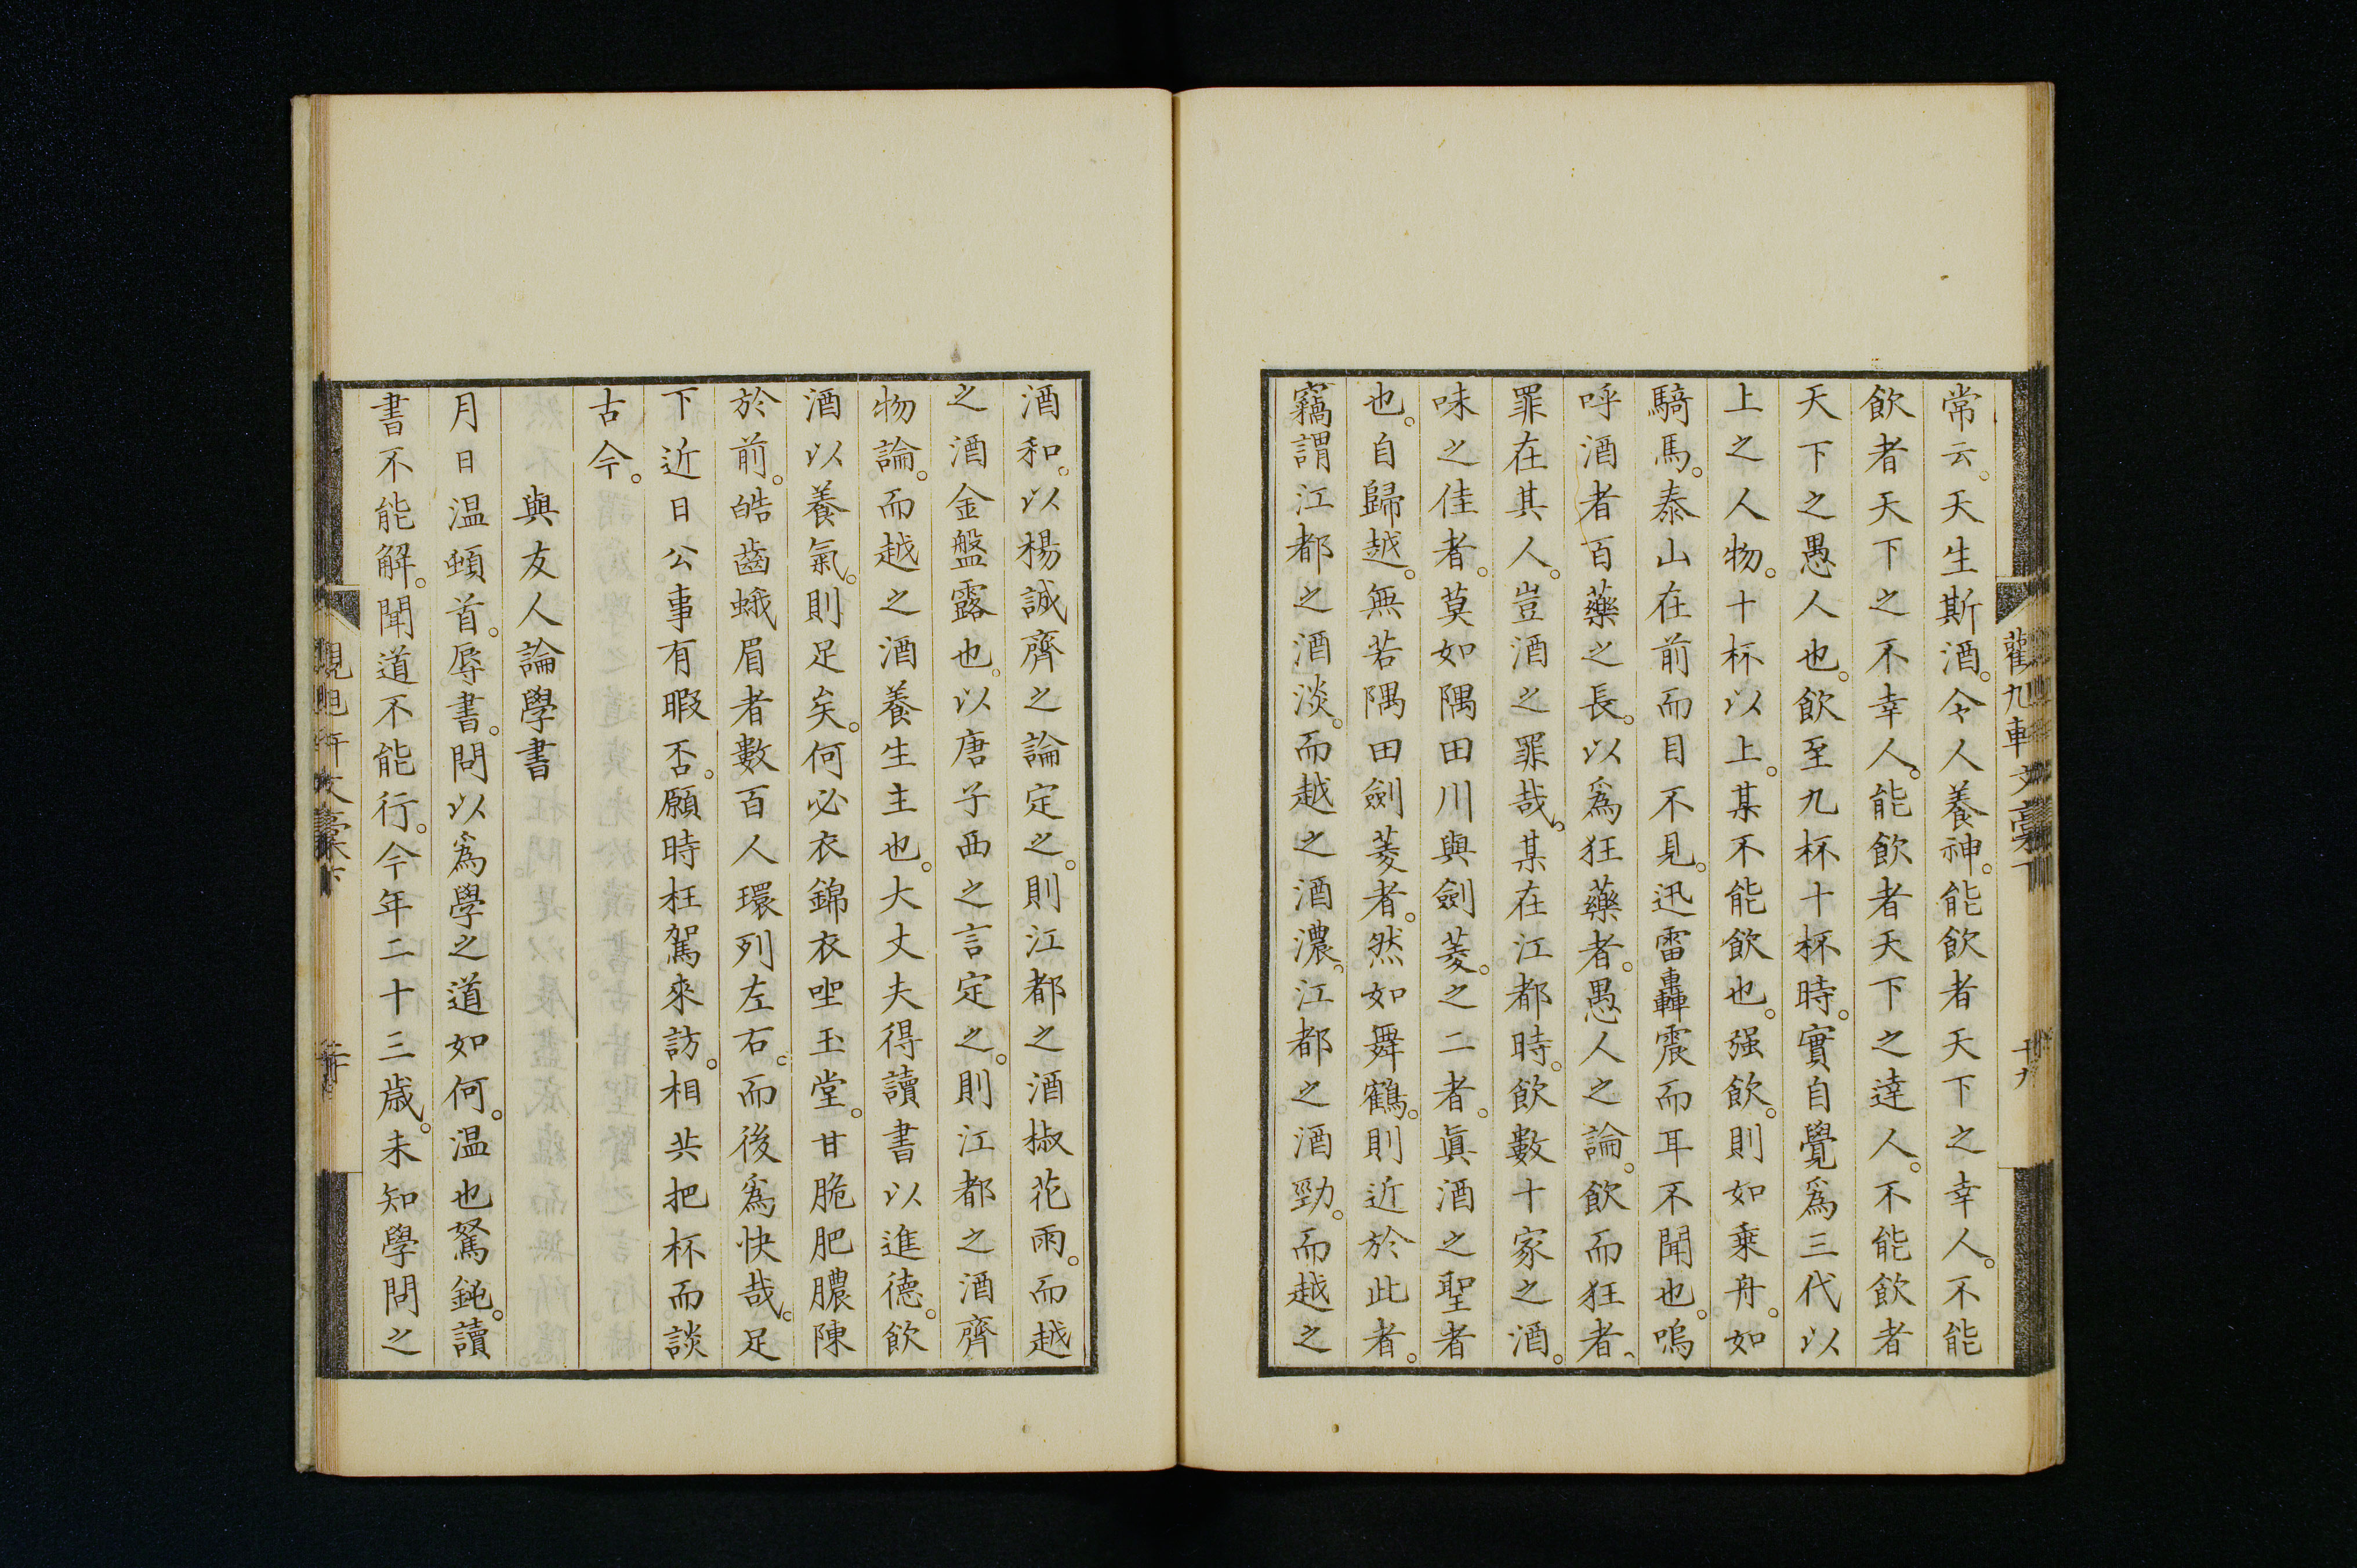 常云。天生斯酒。令人養神。能飲者天下之幸人。不能
飲者天下之不幸人。能飲者天下之達人。不能飲者
天下之愚人也。飲至九杯十杯時。實自覺爲三代以
上之人物。十杯以上。某不能飲也。强飲。則如乗舟。如
騎馬。泰山在前而目不見。迅雷轟震而耳不聞也。嗚
呼酒者百藥之長。以爲狂藥者。愚人之論。飲而狂者、
罪在其人。豈酒之罪哉。某在江都時。飲數十家之酒。
味之佳者。莫如隅田川與劍菱。之二者。眞酒之聖者
也。自歸越。無若隅田劍菱者。然如舞鶴。則近於此者。
竊謂江都之酒淡。而越之酒濃。江都之酒勁。而越之
酒和。以楊誠齊之論定之。則江都之酒椒花雨。而越
之酒金盤露也。以唐子西之言定之。則江都之酒齊
物論。而越之酒養生主也。大丈夫得讀書以進德。飲
酒以養氣。則足矣。何必衣錦衣坐玉堂。甘脆肥膿陳
於前。皓齒蛾眉者數百人環列左右。而後爲快哉。足
下近日公事有暇否。願時枉駕來訪。相共把杯而談
古今。
與友人論學書
月日温頓首。辱書。問以爲學之道如何。温也駑鈍。讀
書不能解。聞道不能行。今年二十三歲。未知學問之